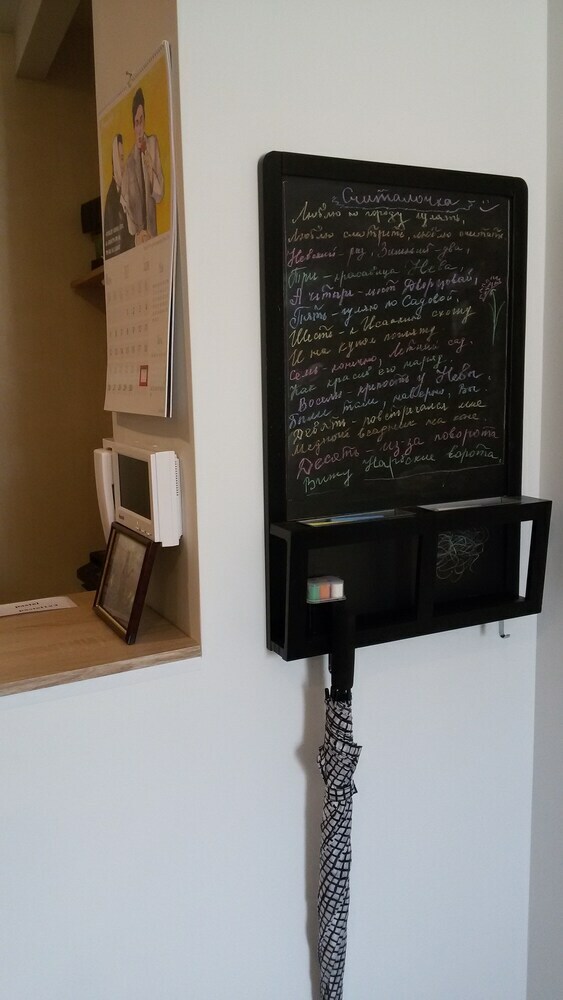 Считалочка
Люблю по городу гулять,
Люблю смотреть, люблю считать
Невский - раз, Зимний - два,
Три - красавица Нева,
А четыре - мост Дворцовый,
Пять - гуляю по Садовой,
Шесть - к Исаакию схожу
И на купол погляжу
Семь - конечно, Летний сад,
Как красив его наряд.
Восемь - крепость у Невы,
Были там, наверно, Вы.
Девять - повстречался мне
Медный всадник на коне
Десять - из-за поворота
Вижу Нарвские ворота.